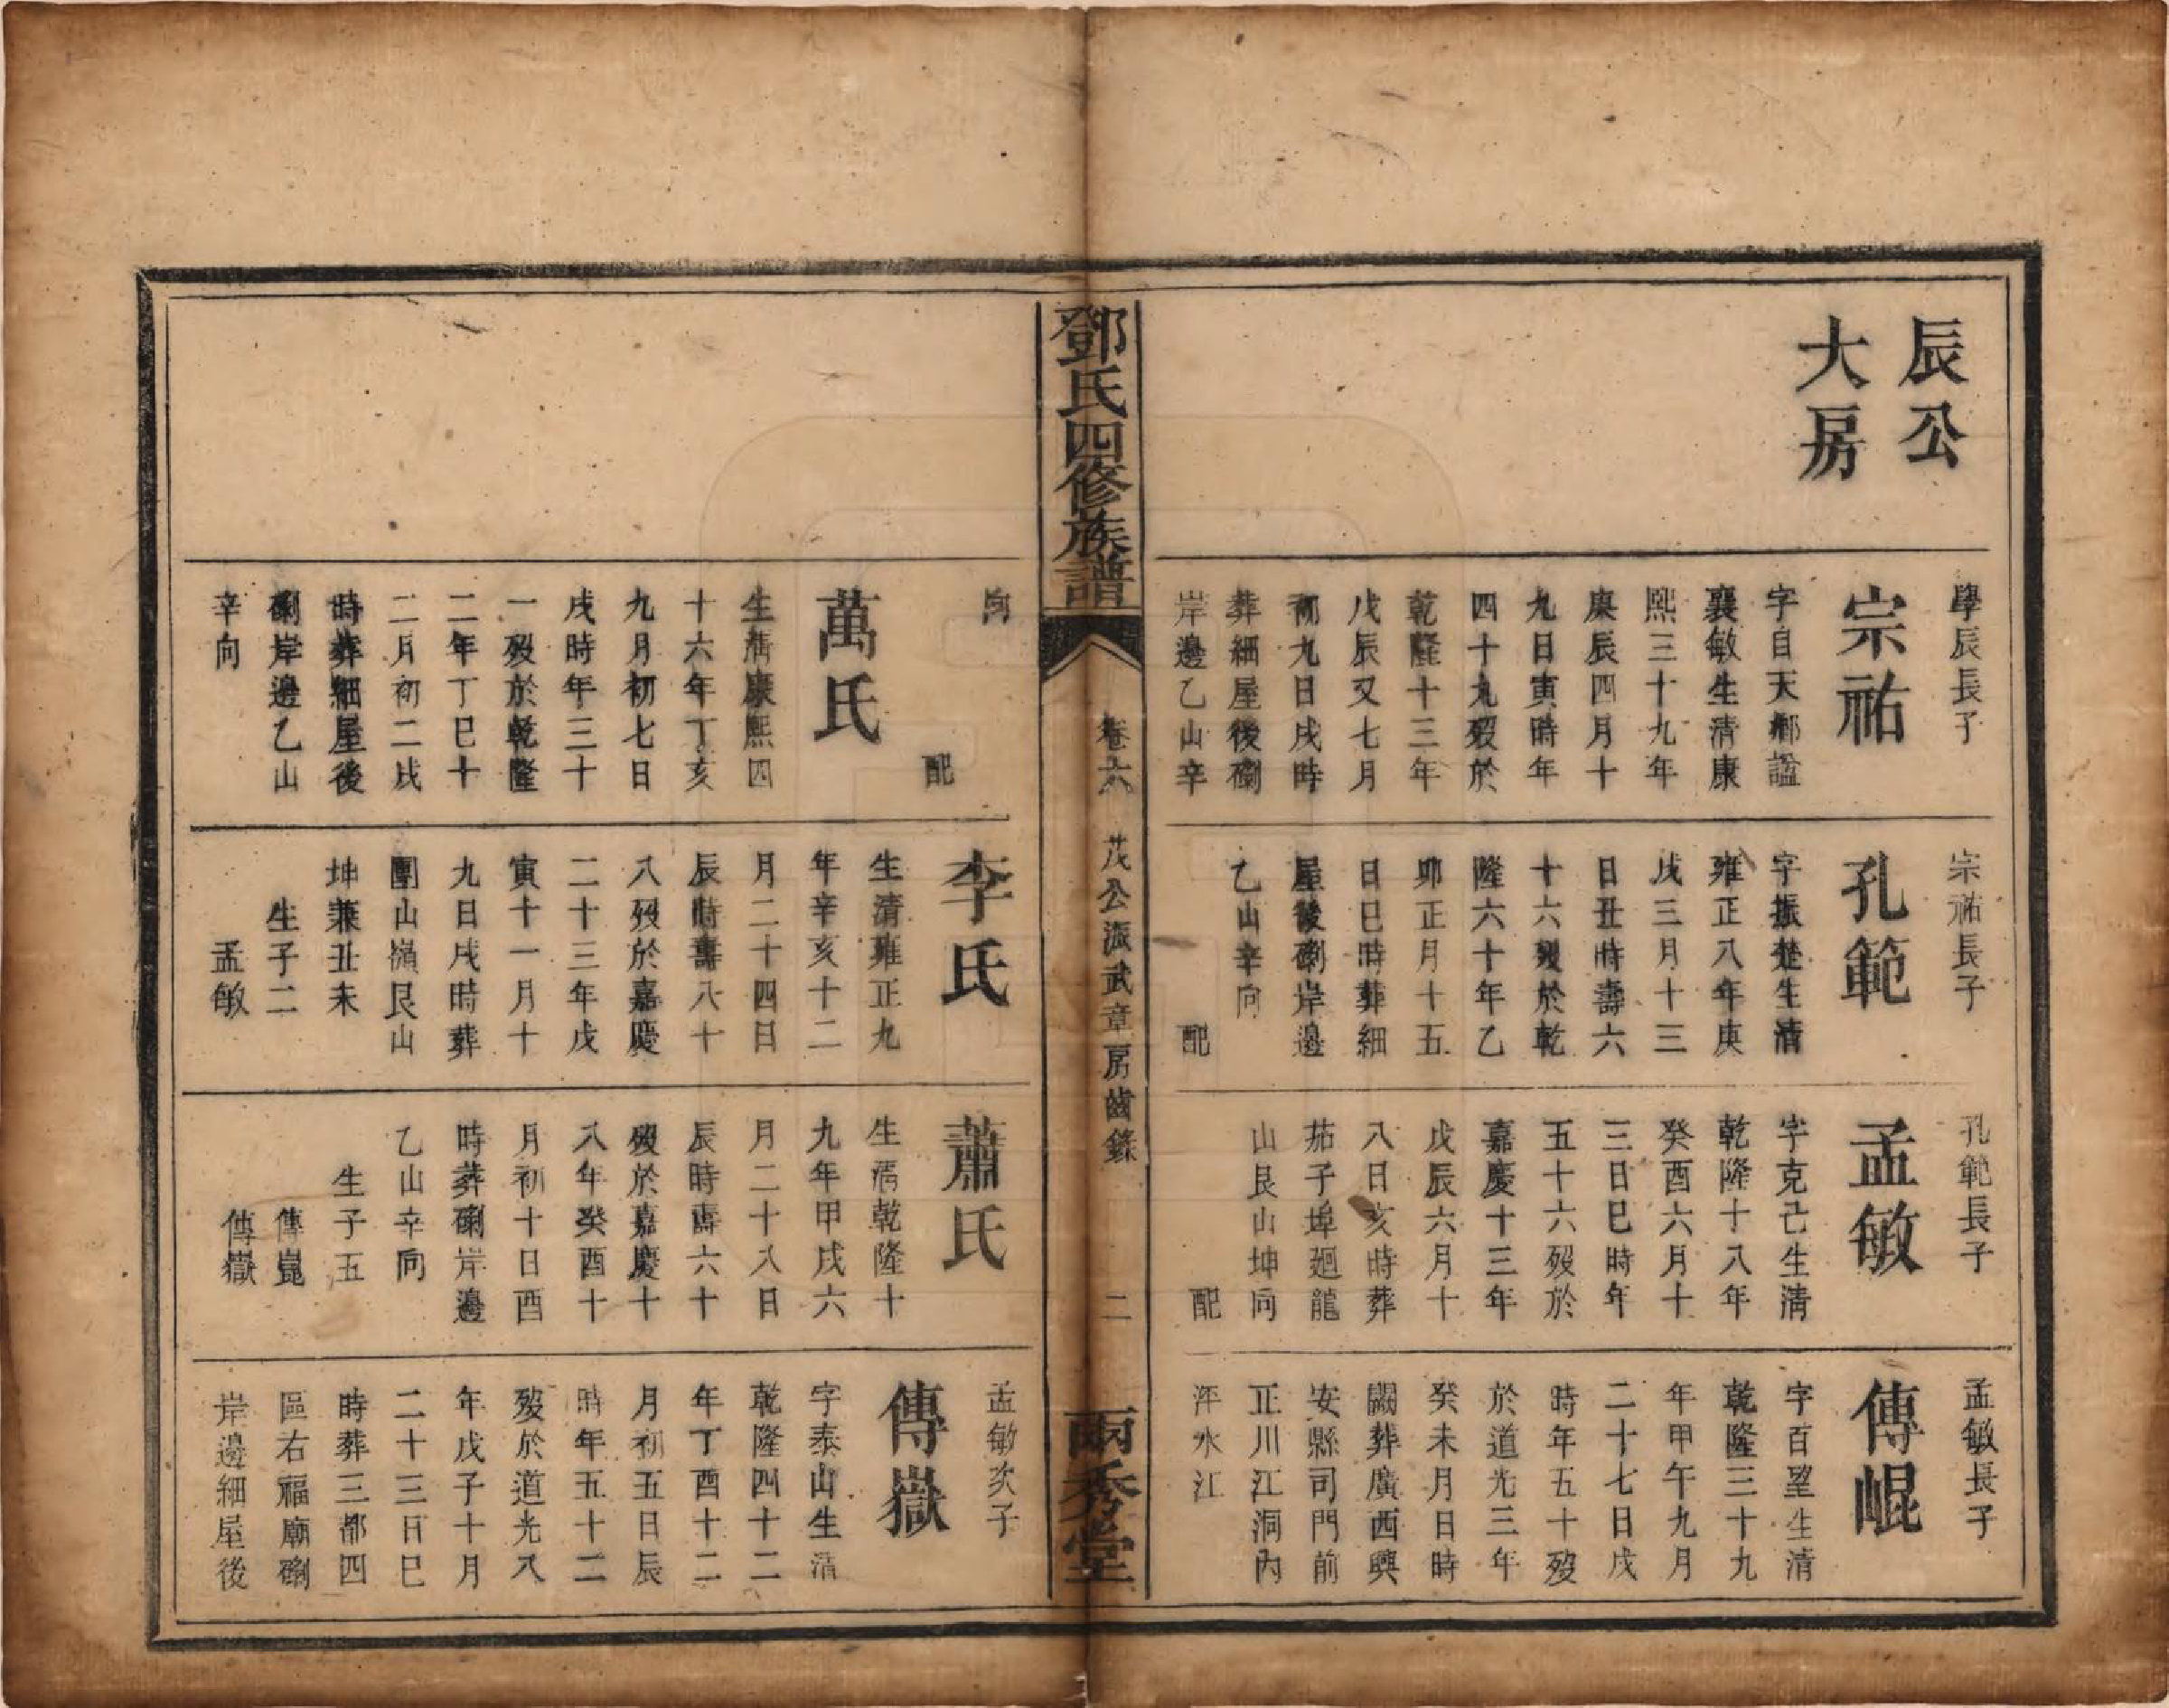 辰公
大房
學辰長子
宗祐
字自天鄉諡
襄敏生清康
熙三十九年
庚辰四月十
九日寅時年
四十九歿於
乾隆十三年
戊辰又七月
初九日戌時
葬細屋後磡
岸邊乙山辛
宗祐長子
孔範
字振楚生清
雍正八年庚
戌三月十三
日丑時壽六
十六歿於乾
隆六十年乙
卯正月十五
日巳時葬細
屋後磡岸邊
乙山辛向
配
孔範長子
孟敏
字克己生清
乾隆十八年
癸酉六月十
三日巳時年
五十六歿於
嘉慶十三年
戊辰六月十
八日亥時葬
茄子埠廻龍
山艮山坤向
配
孟敏長子
傳崐
字百望生清
乾隆三十九
年甲午九月
二十七日戌
時年五十歿
於道光三年
癸未月日時
闕葬廣西興
安縣司門前
正川江洞內
洋水江
鄧氏四修族譜
卷六
茂公派武章房齒錄
二
兩秀堂
向
配
萬氏
生清康熙四
十六年丁亥
九月初七日
戌時年三十
一歿於乾隆
二年丁巳十
二月初二戌
時葬細屋後
磡岸邊乙山
辛向
李氏
生清雍正九
年辛亥十二
月二十四日
辰時壽八十
八歿於嘉慶
二十三年戊
寅十一月十
九日戌時葬
團山嶺艮山
坤兼丑未
生子二
孟敏
蕭氏
生清乾隆十
九年甲戌六
月二十八日
辰時壽六十
歿於嘉慶十
八年癸酉十
月初十日酉
時葬磡岸邊
乙山辛向
生子五
傳崑
傳嶽
孟敏次子
傳嶽
字泰山生清
乾隆四十二
年丁酉十二
月初五日辰
時年五十二
歿於道光八
年戊子十月
二十三日巳
時葬三都四
區右福廟磡
岸邊細屋後